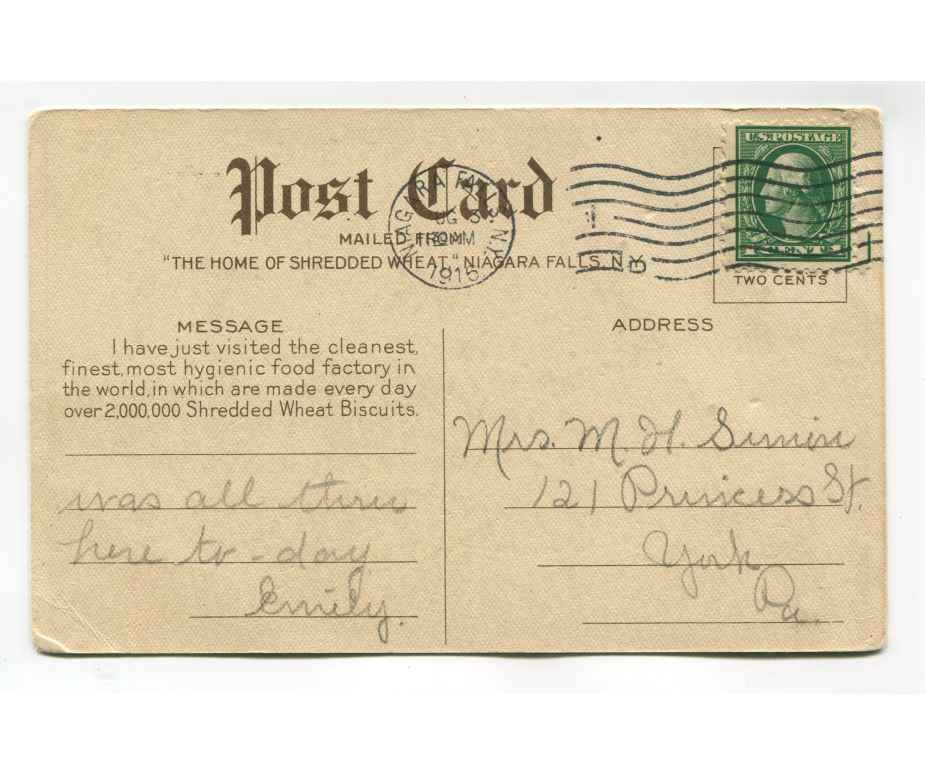 Post Card
MAILED FROM
"THE HOME OF SHREDDED WHEAT," NIAGARA FALLS, N.Y.
NIAGARA FALLS N.Y.
1916
U.S. POSTAGE
TWO CENTS
MESSAGE
I have just visited the cleanest,
finest, most hygienic food factory in
the world, in which are made every day
over 2,000,000 Shredded Wheat Biscuits.
was all thru
here to-day
Emily.
ADDRESS
Mrs. M. H.
121 Princess St.
York
Pa.